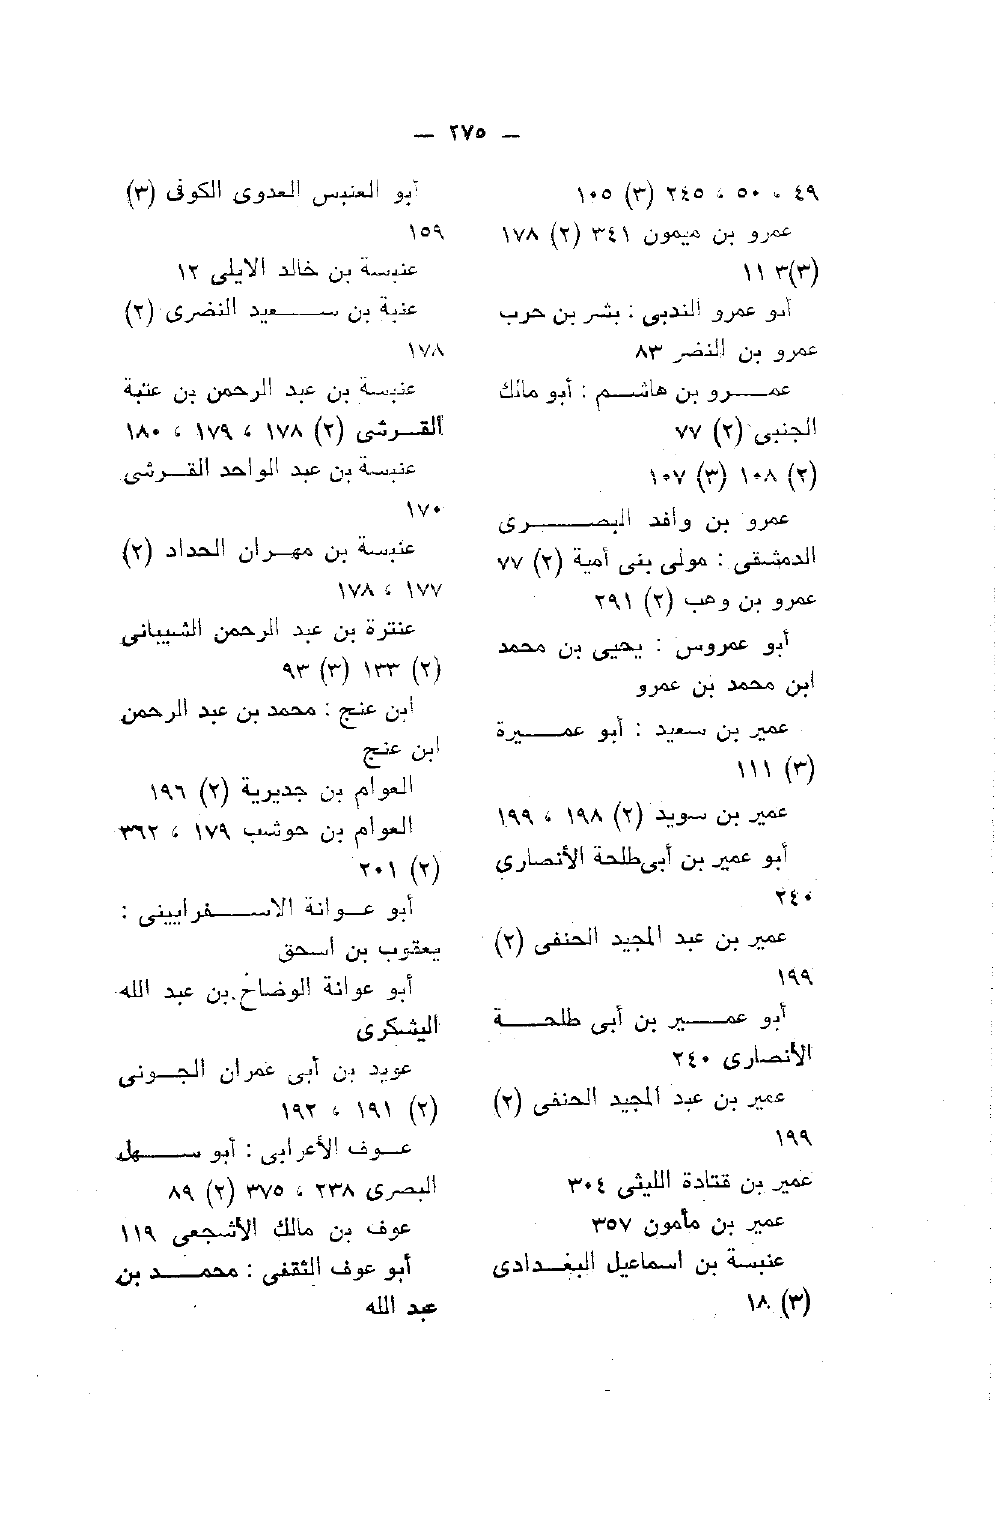 — ٢٧٥ —
٤٩ ، ٥٠ ، ٢٤٥ (٣) ١٠٥
عمرو بن ميمون ٣٤١ (٢) ١٧٨
(٣)٣ ١١
أبو عمرو الندبى : بشر بن حرب
عمرو بن النضر ٨٣
عمرو بن هاشم : أبو مالك
الجنبى (٢) ٧٧
(٢) ١٠٨ (٣) ١٠٧
عمرو بن واقد البصرى
الدمشقى : مولى بنى أمية (٢) ٧٧
عمرو بن وهب (٢) ٢٩١
أبو عمروس : يحيى بن محمد
ابن محمد بن عمرو
عمير بن سعيد : أبو عميرة
(٣) ١١١
عمير بن سويد (٢) ١٩٨ ، ١٩٩
أبو عمير بن أبى طلحة الأنصارى
٢٤٠
عمير بن عبد المجيد الحنفى (٢)
١٩٩
أبو عمير بن أبى طلحة
الأنصارى ٢٤٠
عمير بن عبد المجيد الحنفى (٢)
١٩٩
عمير بن قتادة الليثى ٣٠٤
عمير بن مأمون ٣٥٧
عنبسة بن اسماعيل البغدادى
(٣) ١٨
أبو العنبس العدوى الكوفى (٣)
١٥٩
عنبسة بن خالد الايلى ١٢
عنبة بن سعيد النضرى (٢)
١٧٨
عنبسة بن عبد الرحمن بن عتبة
القرشى (٢) ١٧٨ ، ١٧٩ ، ١٨٠
عنبسة بن عبد الواحد القرشى
١٧٠
عنبسة بن مهران الحداد (٢)
١٧٧ ، ١٧٨
عنترة بن عبد الرحمن الشيبانى
(٢) ١٣٣ (٣) ٩٣
ابن عنج : محمد بن عبد الرحمن
ابن عنج
العوام بن جديرية (٢) ١٩٦
العوام بن حوشب ١٧٩ ، ٣٦٢
(٢) ٢٠١
أبو عوانة الاسفرايينى :
يعقوب بن اسحق
أبو عوانة الوضاح بن عبد الله
اليشكرى
عويد بن أبى عمران الجونى
(٢) ١٩١ ، ١٩٢
عوف الأعرابى : أبو سهل
البصرى ٢٣٨ ، ٣٧٥ (٢) ٨٩
عوف بن مالك الأشجعى ١١٩
أبو عوف الثقفى : محمد بن
عبد الله